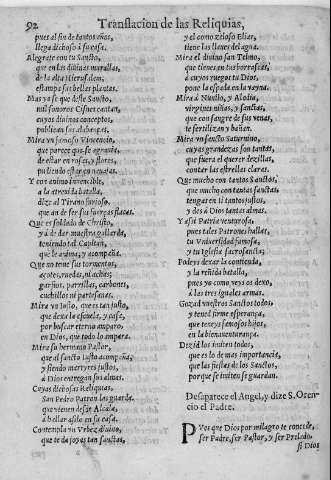 92 Translacion de las Reliquias,
pues al fin de tantos años,
llega dichoso à su casa.
Alegrate con tu Sancto,
que en las diuinas murallas,
de la alta Hierusalem,
estampa sus bellas plantas.
Mas ya se que deste Sancto,
mil sonoros Cisnes cantan,
cuyos diuinos conceptos,
publican sus alabanças.
Mira vn famoso Vincencio,
que parece que se agrauia,
de estar en rosas, y flores,
pudiendo estar en nauajas.
Y con animo inuencible,
a la atreuida batalla,
dize al Tirano furioso,
que an de ser sus fuerças flacas.
Que es soldado de Christo,
y à de dar muestra gallarda,
teniendo tal Capitan,
que le anima, y acompaña.
Que no tene sus tormentos,
açotes, ruedas, ni achies;
garfios, parrillas, carbones,
cuchillos ni partesanas.
Mira vn Iusto, que es tan justo,
que dexa la escuela, y casa,
por buscar eterno amparo,
en Dios, que todo lo ampara.
Mira su hermano Pastor,
que al sancto Iusto acompaña,
y siendo martyres justos,
à Dios entregan sus almas.
Cuyas dichosas Reliquias,
San Pedro Patron las guarda.
que vienen desde Alcala,
à hallar asilo en su casa.
Contempla vn Vrbez diuino,
que te da joyas tan sanctas,
y el como zeloso Elias,
tiene las llaues del agua.
Mira el diuino san Telmo,
que tienes en tus hornesas,
à cuyos ruegos tu Dios,
pone la espada en la vayna.
Mira à Nunilo, y Alodia,
virgines niñas, y sanctas,
que con sangre de sus venas,
te fertilizan y bañan.
Mira vn sancto Saturnino,
cuyas grandezas son tantas,
que fuera el querer dezillas,
contar las estrellas claras.
Que mucho con tantos Sanctos,
que mucho con tantas sanctas
tengas en ti tantos justos,
y des à Dios tantas almas.
Y assi Patria venturosa,
pues tales Patrones hallas,
tu Vniuersidad famosa,
y tu Iglesia sacrosancta;
Podeys dexar la contienda,
y la reñida batalla,
pues yo como veys os dexo,
à los tres iguales armas.
Gozad vuestros Sanctos todos,
y tened firme esperança,
que teneys famosos hijos,
en la bienauenturança.
Dizid los imiten todos,
que es lo de mas importancia,
que las fiestas de los Sanctos,
porque se imiten se guardan.
Desaparece el Angel, y dize S. Orencio el Padre.
PVes que Dios por milagro te concede,
ser Padre, ser Pastor, y ser Prelado,
si Dios